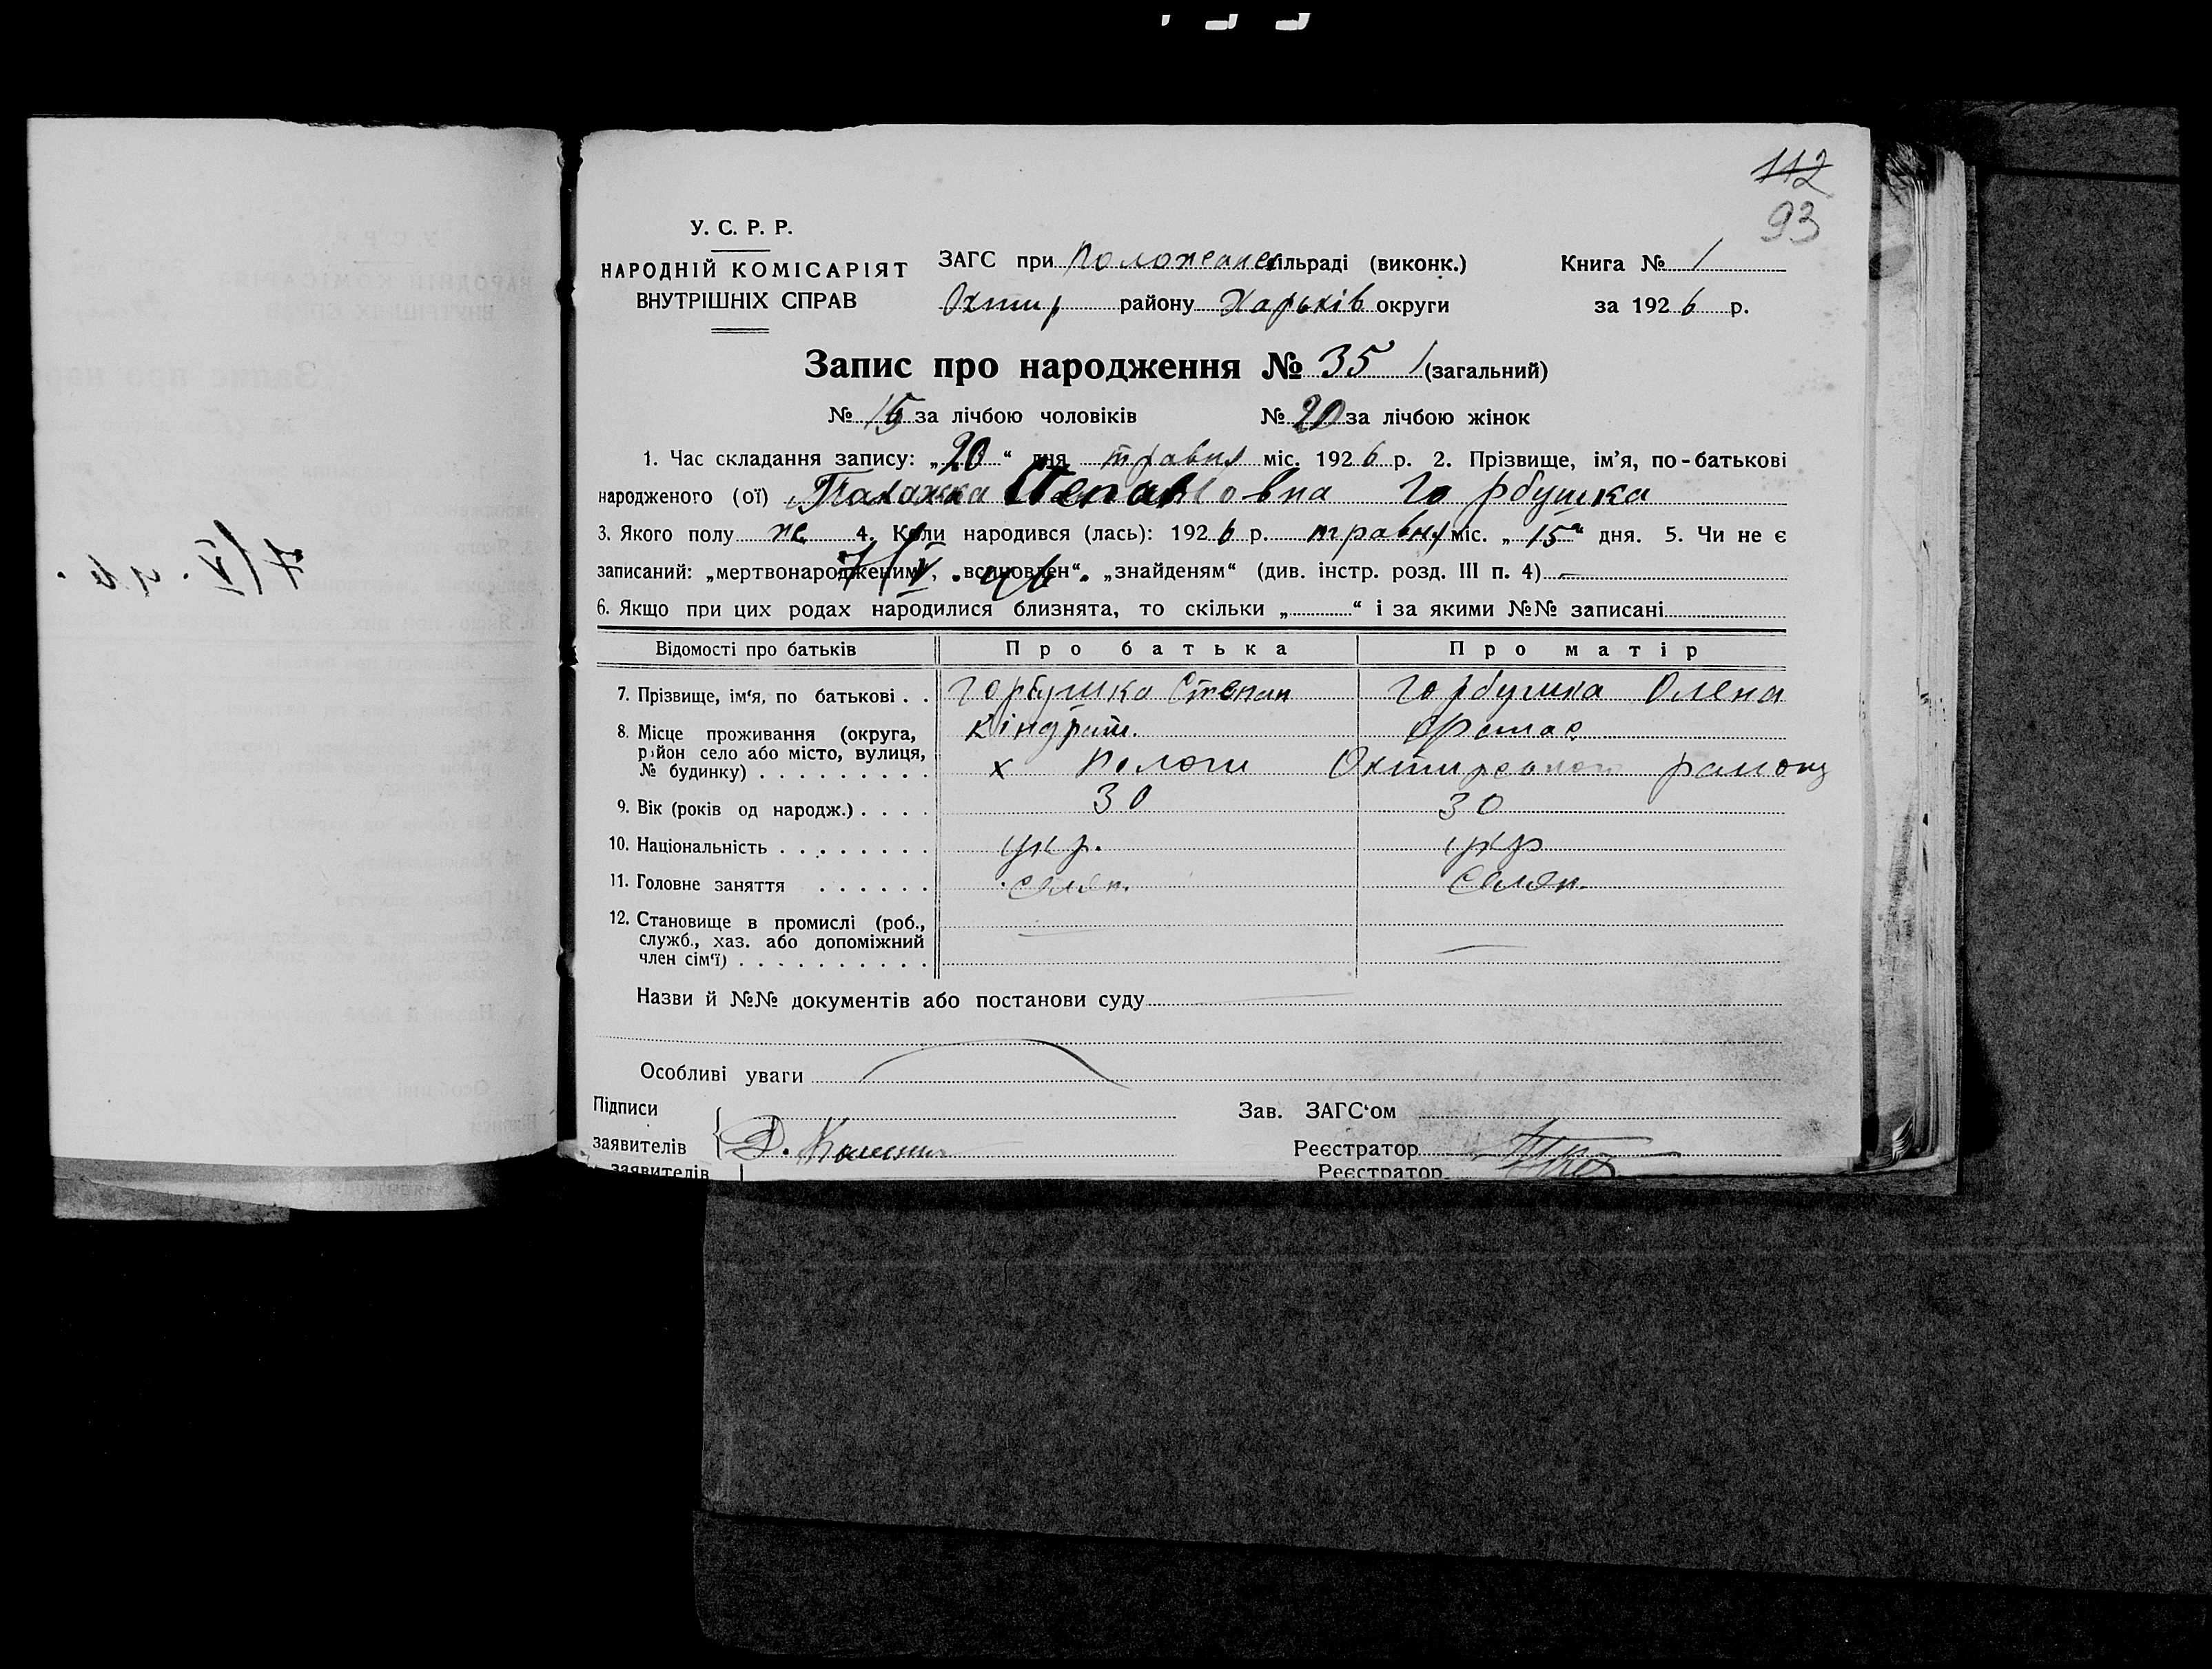 112
93
У. С. Р. Р.
НАРОДНІЙ КОМІСАРІЯТ
ВНУТРІШНІХ СПРАВ
ЗАГС при сільраді (виконк.)
Охтир району Харьків округи
Книга № 1
за 1926 р.
Запис про народження № 35 (загальний)
№ 15 за лічбою чоловіків № 20 за лічбою жінок
1. Час складання запису: „20“ дня травня міс. 1926 р. 2. Прізвище, ім'я, по-батькові
народженого (ої) Палажка Степановна Горбушка
3. Якого полу ж 4. Коли народився (лась): 1926 р. травня міс. „15“ дня. 5. Чи не є
записаний: „мертвонародженим“, „встановлен“, „знайденям“ (див. інстр. розд. III п. 4) —
7/V. 46.
6. Якщо при цих родах народилися близнята, то скільки „ “ і за якими №№ записані
Відомості про батьків Про батька Про матір
7. Прізвище, ім'я, по батькові . . Горбушка Степан Горбушка Олена
Кіндрат.
8. Місце проживання (округа,
район село або місто, вулиця,
№ будинку) . . . . . . . . . х Пологи Охтирського району
9. Вік (років од народж.) . . . . 30 30
10. Національність . . . . . . . . укр. укр
11. Головне заняття . . . . . . селян. селян.
12. Становище в промислі (роб.,
служб., хаз. або допоміжний
член сім'ї) . . . . . . . . . .
Назви й №№ документів або постанови суду
Особливі уваги
Підписи
заявителів
Зав. ЗАГС'ом
Реєстратор
заявителів
Реєстратор